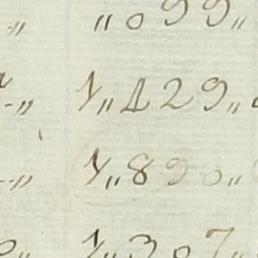 „ „099„
-„ 1„129„
-„ 1„890„
„ 1„307„